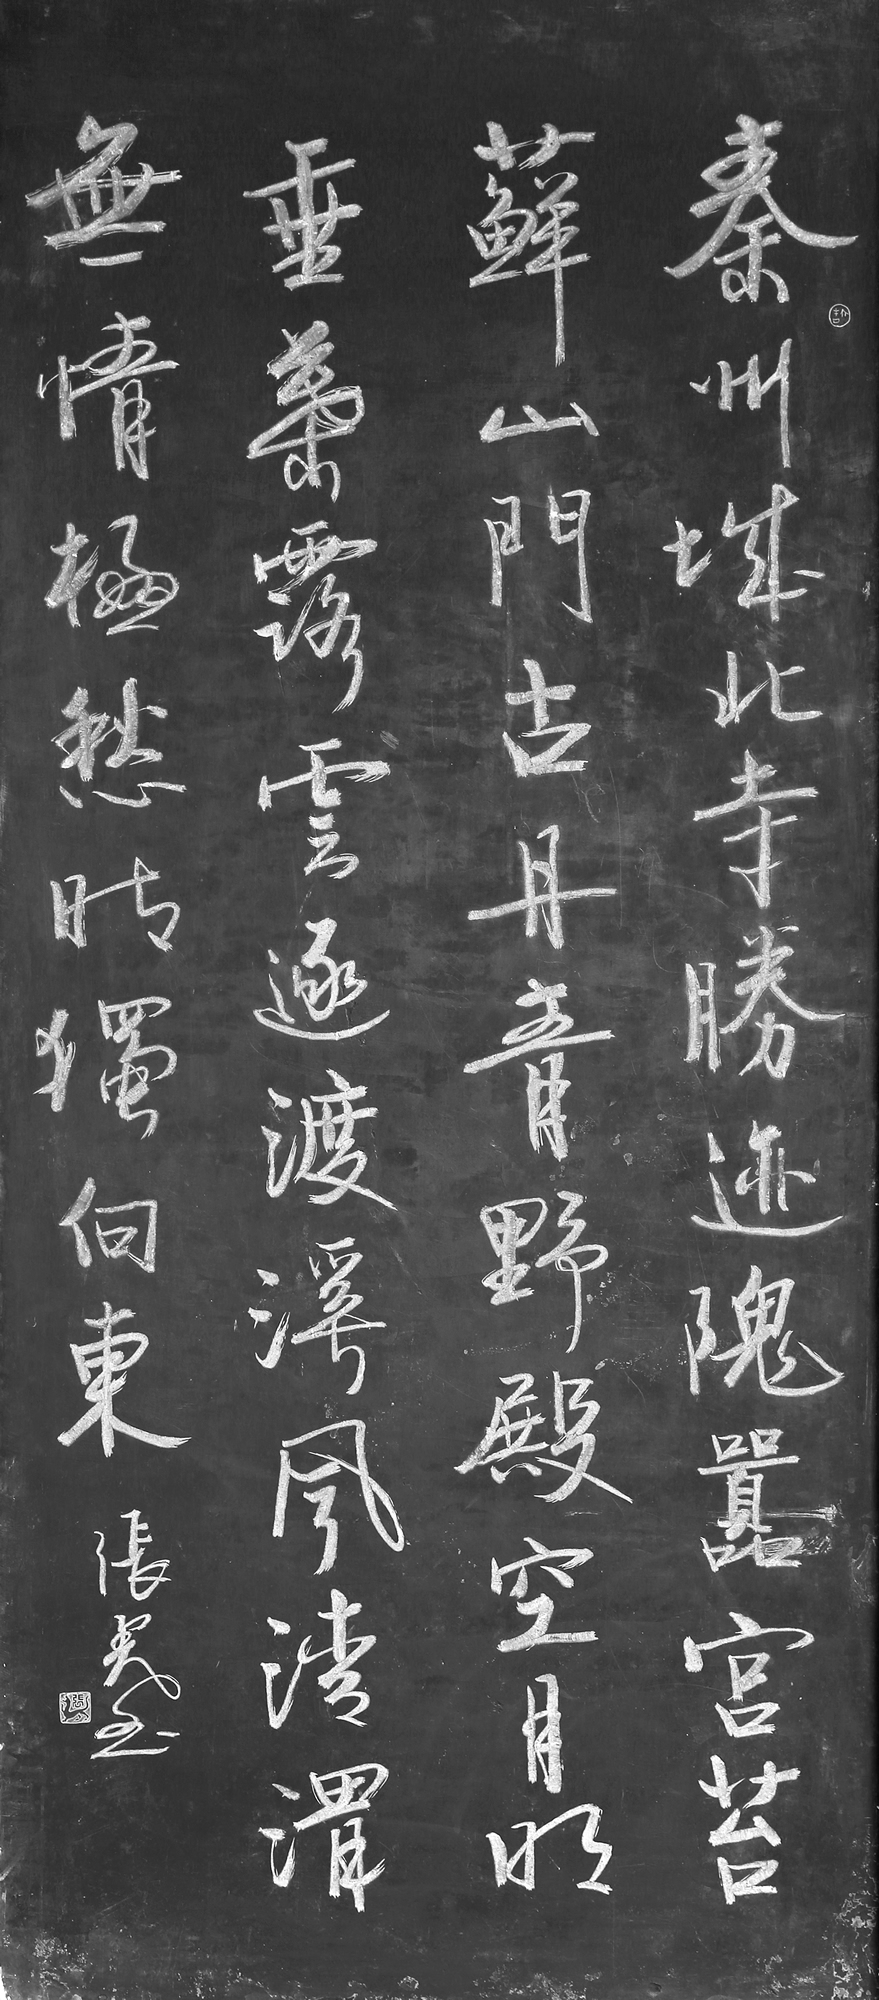 秦州城北寺勝迹隗囂宫苔
蘚山門古丹青野殿空月明
垂葉露雲逐渡溪風清渭
無情極愁时獨向東
張